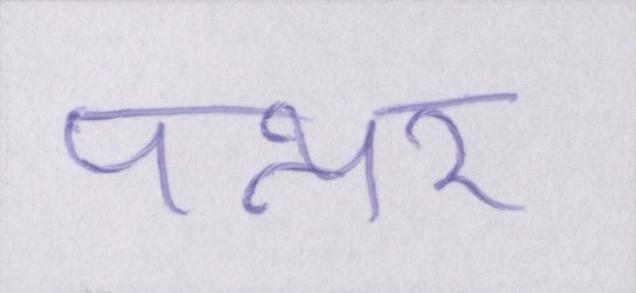 पत्थर